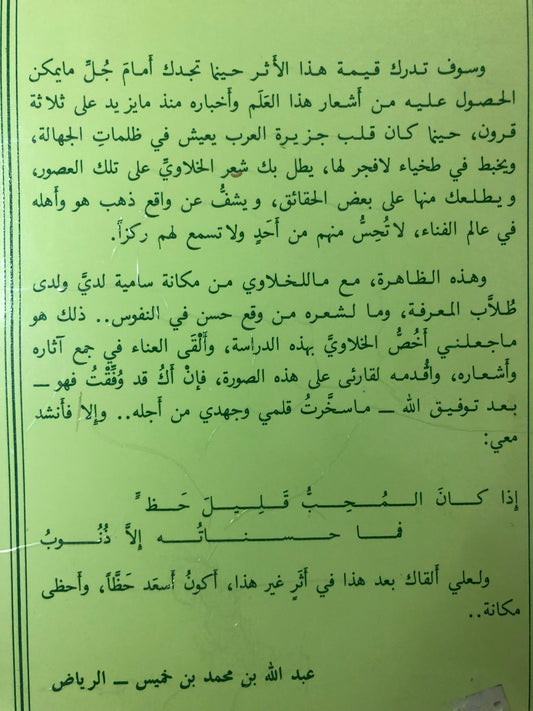 وسوف تدرك قيمة هذا الأَثر حينما تجدك أَمامَ جُلِّ مايمكن
الحصول عليه من أَشعار هذا العَلَم وأَخباره منذ مايزيد على ثلاثة
قرون، حينما كان قلب جزيرة العرب يعيش في ظلماتِ الجهالة،
ويخبط في طخياء لافجر لها، يطل بك شعر الخلاويِّ على تلك العصور،
ويطلعك منها على بعض الحقائق، ويشفُّ عن واقع ذهب هو وأَهله
في عالم الفناء، لاتُحِسُّ منهم من أَحَدٍ ولاتسمع لهم ركزاً.
وهذه الظاهرة، مع ماللخلاوي من مكانة سامية لديَّ ولدى
طُلاَّب المعرفة، وما لشعره من وقع حسن في النفوس.. ذلك هو
ماجعلني أَخُصُّ الخلاويَّ بهذه الدراسة، وأَلْقَى العناء في جمع آثاره
وأَشعاره، واقُدمه لقارئى على هذه الصورة، فإنْ أَكُ قد وُفِّقْتُ فهو ــ
بعد توفيق الله ــ ماسخَّرتُ قلمي وجهدي من أجله.. وإلا فأَنشد
معي:
إذا كـــانَ الـــمُـــحِـــبُّ قَـــلِـــيـــلَ حَـــظٍّ
فمـــا حـــســـنـــاتُـــه إلاَّ ذُنُـــوبُ
ولعلي أَلقاك بعد هذا في أَثَرٍ غير هذا، أَكونُ أَسعَد حَظَّاً، وأَحظى
مكانة..
عبد الله بن محمد بن خميس ــ الرياض